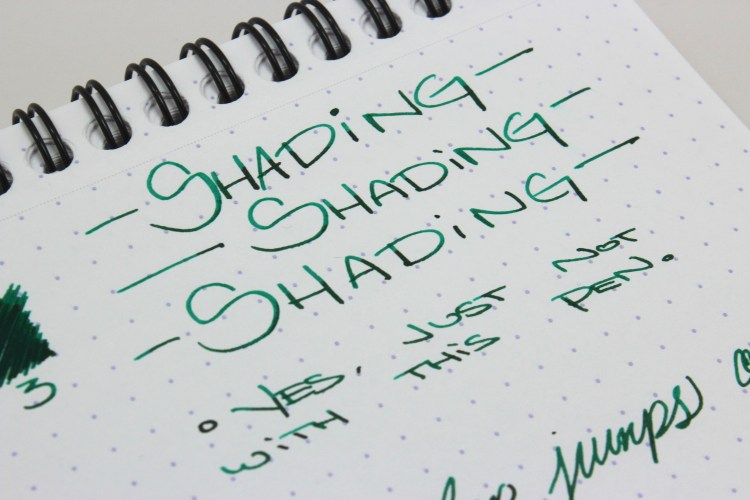 - SHADiNG -
- SHADiNG -
- SHADiNG -
3
• YES. JUST NOT
WiTH THiS PEN.
jumps